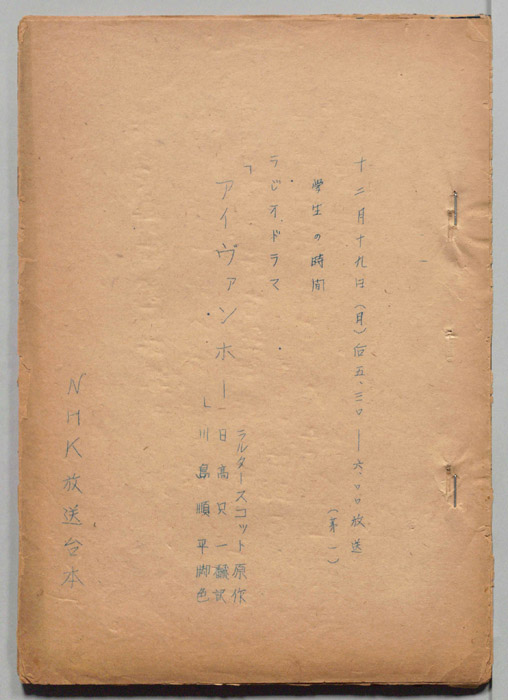 十二月十九日(月)后五、三〇—六、〇〇放送
(第一)
學生の時間
ラジオドラマ
「アイヴァンホー」
ラルタースコット原作
日高只一飜訳
川島順平脚色
NHK放送台本